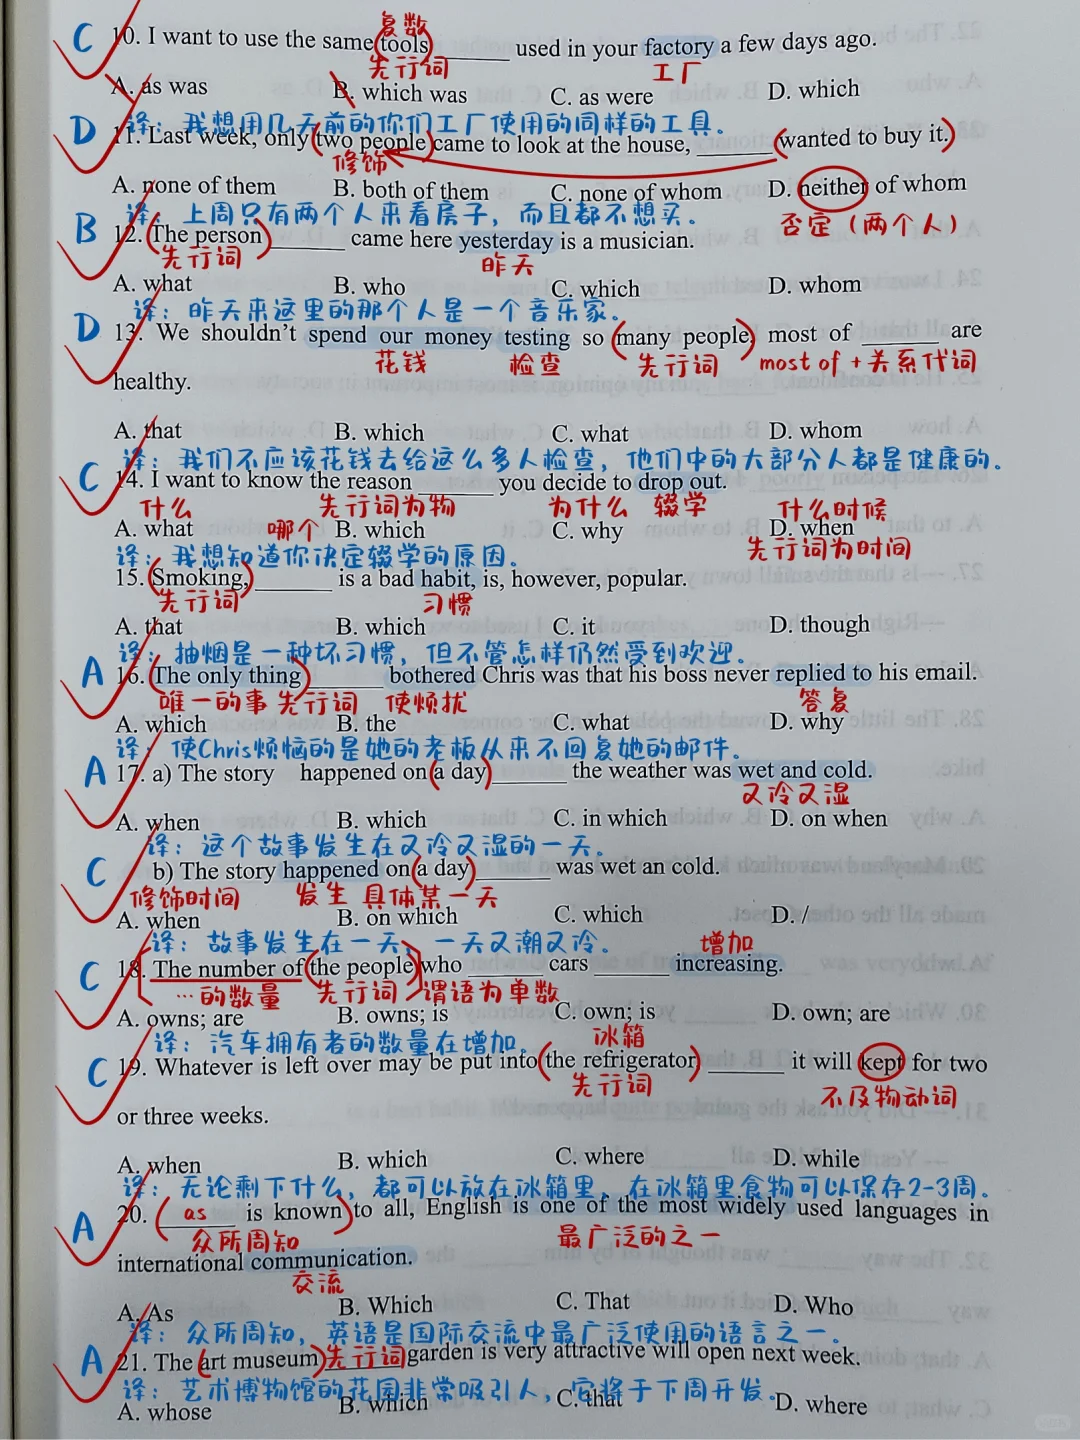 复数
C 10. I want to use the same tools ______ used in your factory a few days ago.
先行词 工厂
A. as was B. which was C. as were D. which
译：我想用几天前的你们工厂使用的同样的工具。
D 11. Last week, only two people came to look at the house, ______ wanted to buy it.
修饰
A. none of them B. both of them C. none of whom D. neither of whom
译：上周只有两个人来看房子，而且都不想买。 否定（两个人）
B 12. The person ______ came here yesterday is a musician.
先行词 昨天
A. what B. who C. which D. whom
译：昨天来这里的那个人是一个音乐家。
D 13. We shouldn't spend our money testing so many people, most of ______ are
花钱 检查 先行词 most of + 关系代词
healthy.
A. that B. which C. what D. whom
译：我们不应该花钱去给这么多人检查，他们中的大部分人都是健康的。
C 14. I want to know the reason ______ you decide to drop out.
什么 先行词为物 为什么 辍学 什么时候
A. what 哪个 B. which C. why D. when
译：我想知道你决定辍学的原因。 先行词为时间
15. Smoking, ______ is a bad habit, is, however, popular.
先行词 习惯
A. that B. which C. it D. though
译：抽烟是一种坏习惯，但不管怎样仍然受到欢迎。
A 16. The only thing ______ bothered Chris was that his boss never replied to his email.
唯一的事 先行词 使烦扰 答复
A. which B. the C. what D. why
译：使Chris烦恼的是她的老板从来不回复她的邮件。
A 17. a) The story happened on a day ______ the weather was wet and cold.
又冷又湿
A. when B. which C. in which D. on when
译：这个故事发生在又冷又湿的一天。
C b) The story happened on a day ______ was wet an cold.
修饰时间 发生 具体某一天
A. when B. on which C. which D. /
译：故事发生在一天，一天又潮又冷。 增加
C 18. The number of the people who ______ cars ______ increasing.
…的数量 先行词 谓语为单数
A. owns; are B. owns; is C. own; is D. own; are
译：汽车拥有者的数量在增加。 冰箱
C 19. Whatever is left over may be put into the refrigerator ______ it will kept for two
先行词 不及物动词
or three weeks.
A. when B. which C. where D. while
译：无论剩下什么，都可以放在冰箱里，在冰箱里食物可以保存2-3周。
A 20. as is known to all, English is one of the most widely used languages in
众所周知 最广泛的之一
international communication.
交流
A. As B. Which C. That D. Who
译：众所周知，英语是国际交流中最广泛使用的语言之一。
A 21. The art museum 先行词 garden is very attractive will open next week.
译：艺术博物馆的花园非常吸引人，它将于下周开发。
A. whose B. which C. that D. where